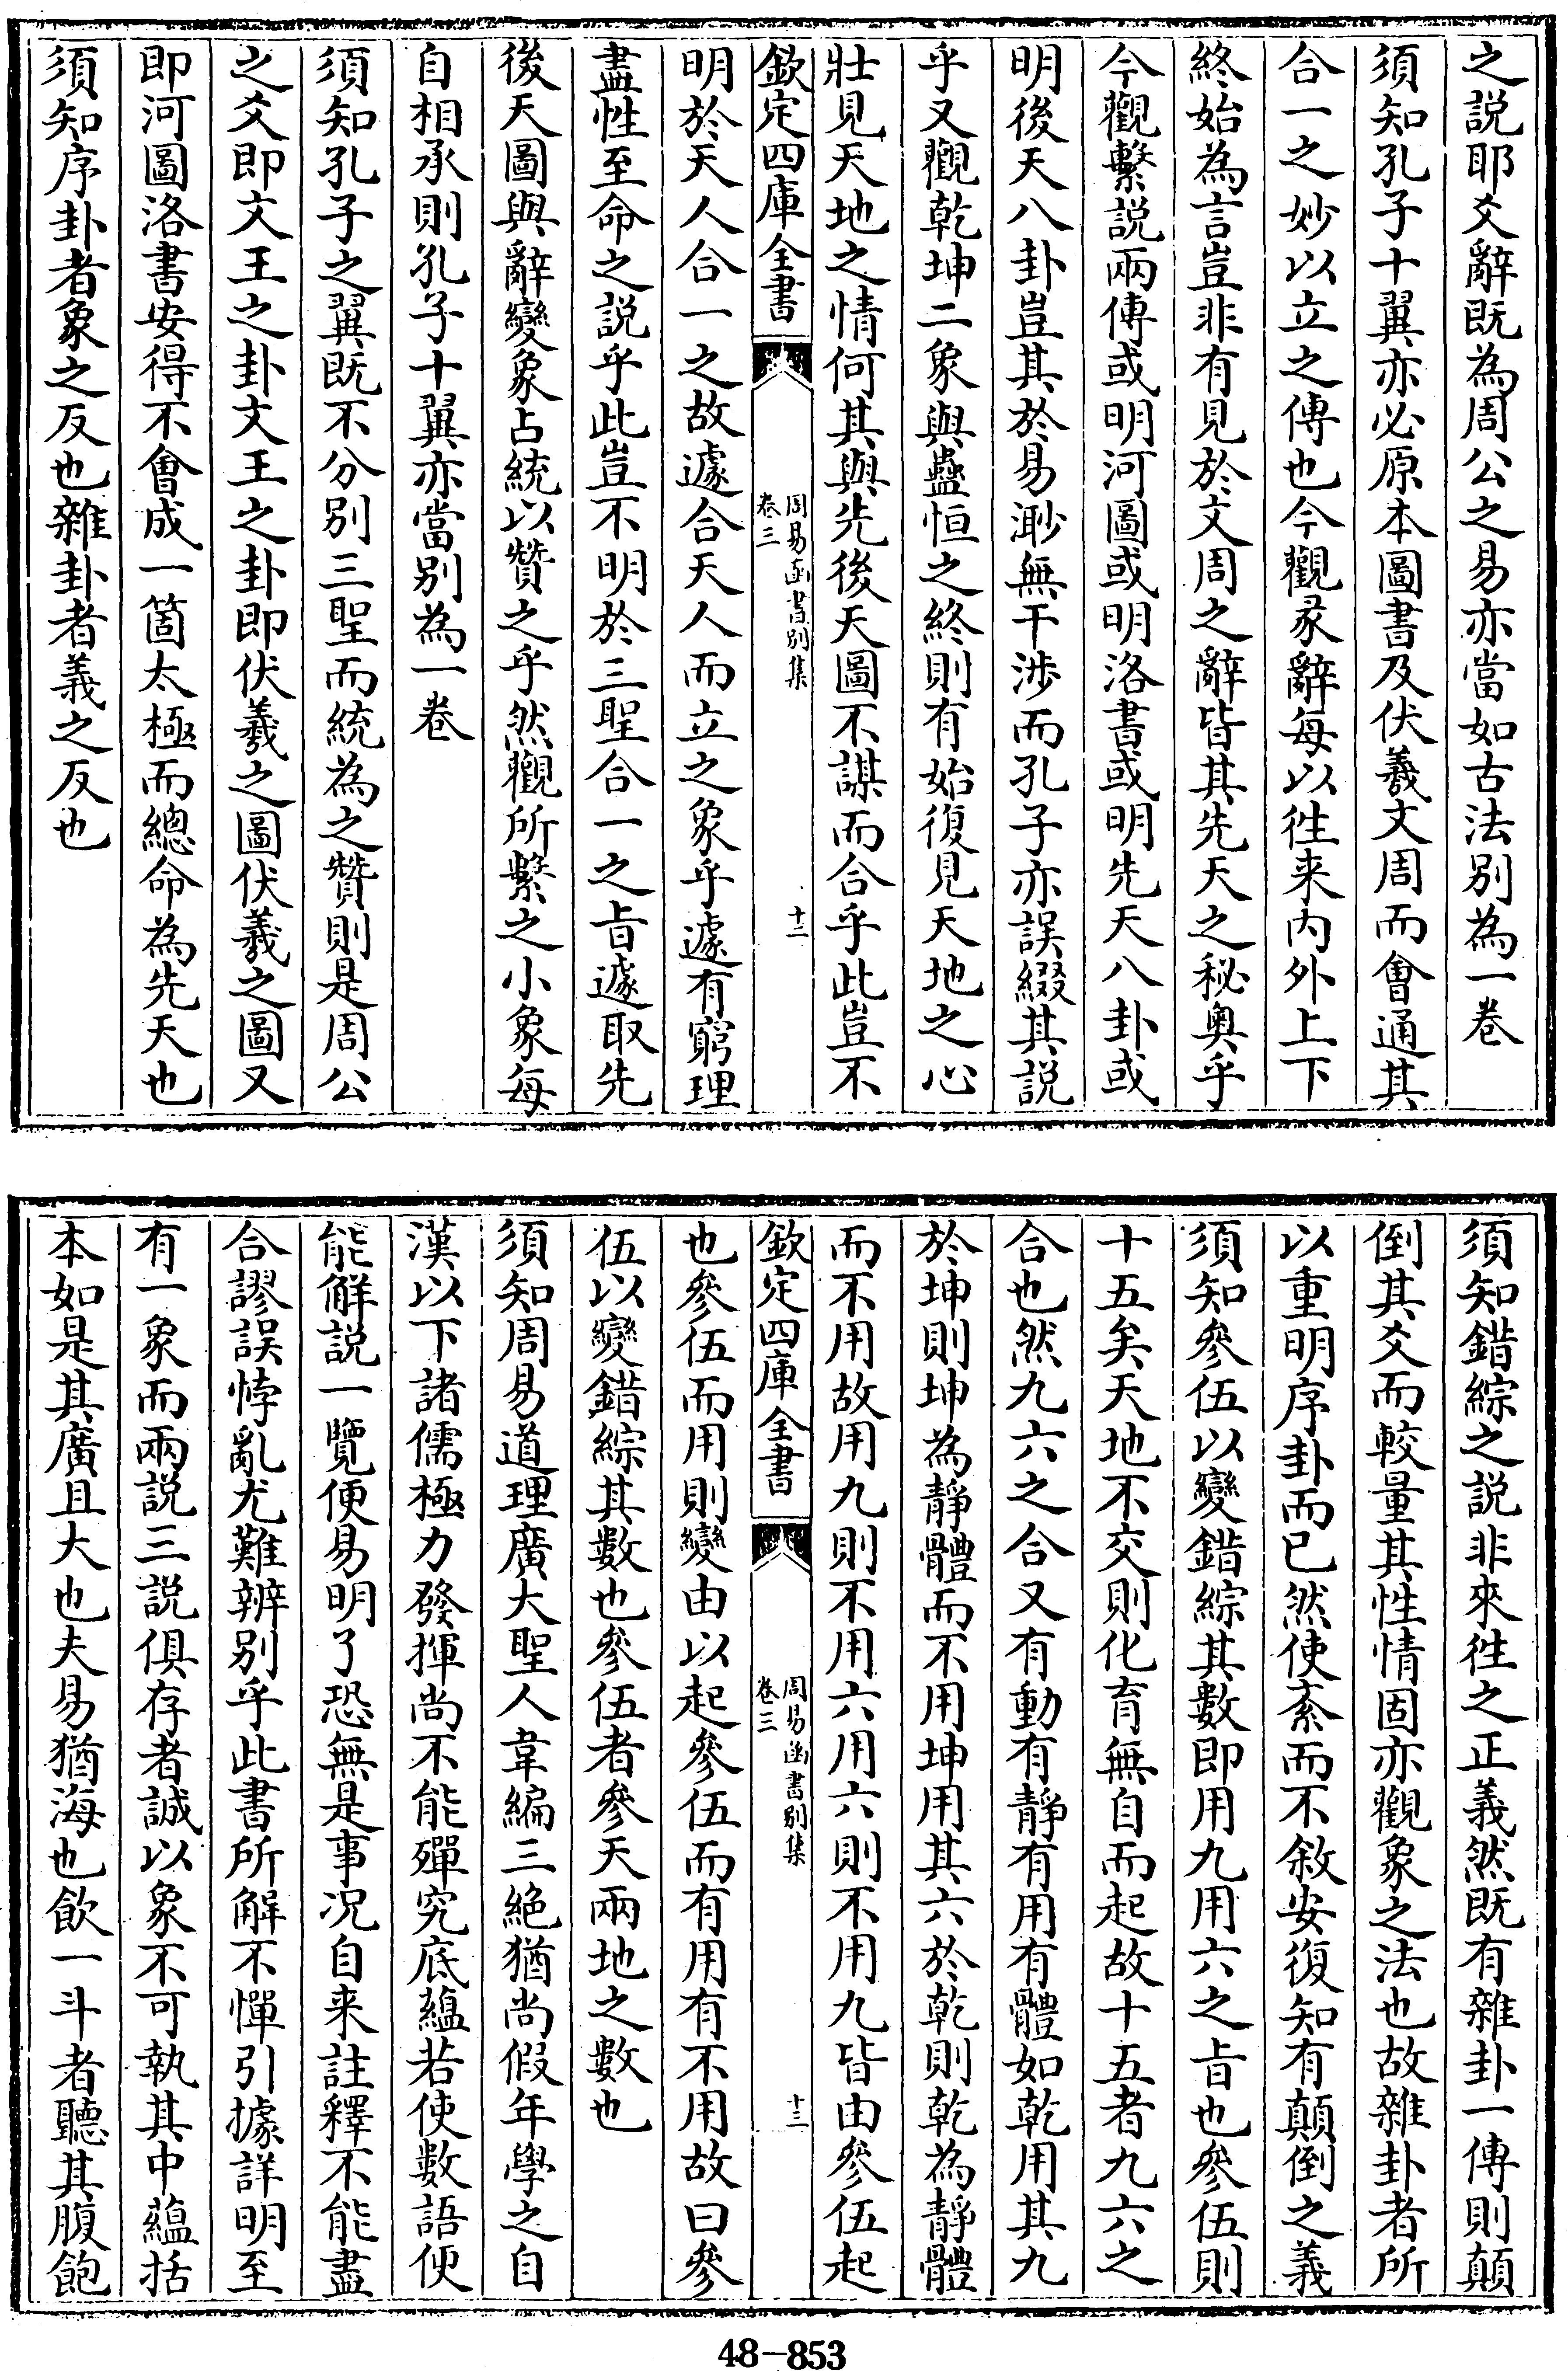 之說耶爻辭既為周公之易亦當如古法別為一卷
須知孔子十翼亦必原本圖書及伏羲文周而會通其
合一之妙以立之傳也今觀彖辭每以徃来内外上下
終始為言豈非有見於文周之辭皆其先天之秘奥乎
今觀繫說兩傳或明河圖或明洛書或明先天八卦或
明後天八卦豈其於易渺無干涉而孔子亦誤綴其說
乎又觀乾坤二象與蠱恒之終則有始復見天地之心
壯見天地之情何其與先後天圖不謀而合乎此豈不
欽定四庫全書
周易函書別集
卷三
十二
明於天人合一之故遽合天人而立之象乎遽有窮理
盡性至命之說乎此豈不明於三聖合一之旨遽取先
後天圖與辭變象占統以贊之乎然觀所繫之小象每
自相承則孔子十翼亦當別為一卷
須知孔子之翼既不分別三聖而統為之贊則是周公
之爻即文王之卦文王之卦即伏羲之圖伏羲之圖又
即河圖洛書安得不會成一箇太極而總命為先天也
須知序卦者象之反也雜卦者義之反也
須知錯綜之說非來徃之正義然既有雜卦一傳則顛
倒其爻而較量其性情固亦觀象之法也故雜卦者所
以重明序卦而已然使紊而不敘安復知有顛倒之義
須知參伍以變錯綜其數即用九用六之旨也參伍則
十五矣天地不交則化育無自而起故十五者九六之
合也然九六之合又有動有靜有用有體如乾用其九
於坤則坤為靜體而不用坤用其六於乾則乾為靜體
而不用故用九則不用六用六則不用九皆由參伍起
欽定四庫全書
周易函書別集
卷三
十三
也參伍而用則變由以起參伍而有用有不用故曰參
伍以變錯綜其數也參伍者參天兩地之數也
須知周易道理廣大聖人韋編三絶猶尚假年學之自
漢以下諸儒極力發揮尚不能殫究底蘊若使數語便
能解說一覽便易明了恐無是事况自来註釋不能盡
合謬誤悖亂尤難辨別乎此書所解不憚引據詳明至
有一象而兩說三說俱存者誠以象不可執其中蘊括
本如是其廣且大也夫易猶海也飲一斗者聽其腹飽
48-853